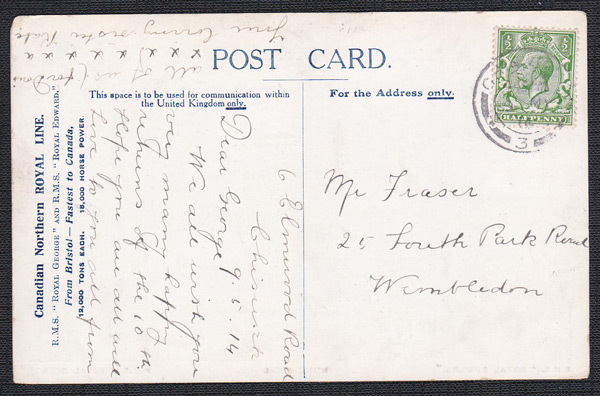 POST CARD.
This space is to be used for communication within
the United Kingdom only.
For the Address only.
Canadian Northern ROYAL LINE.
R.M.S. "ROYAL GEORGE" AND R.M.S. "ROYAL EDWARD."
From Bristol—Fastest to Canada.
12,000 TONS EACH. 18,000 HORSE POWER.
6 Elmwood Road
Chiswick
9.5.14
Dear George
We all wish you
very many happy
returns of the 10th.
Hope you are all well
Love to you all from
all of us
x x x x x x x x
Your loving sister Kate
Mr Fraser
25 South Park Road
Wimbledon
½ ½
HALFPENNY
3